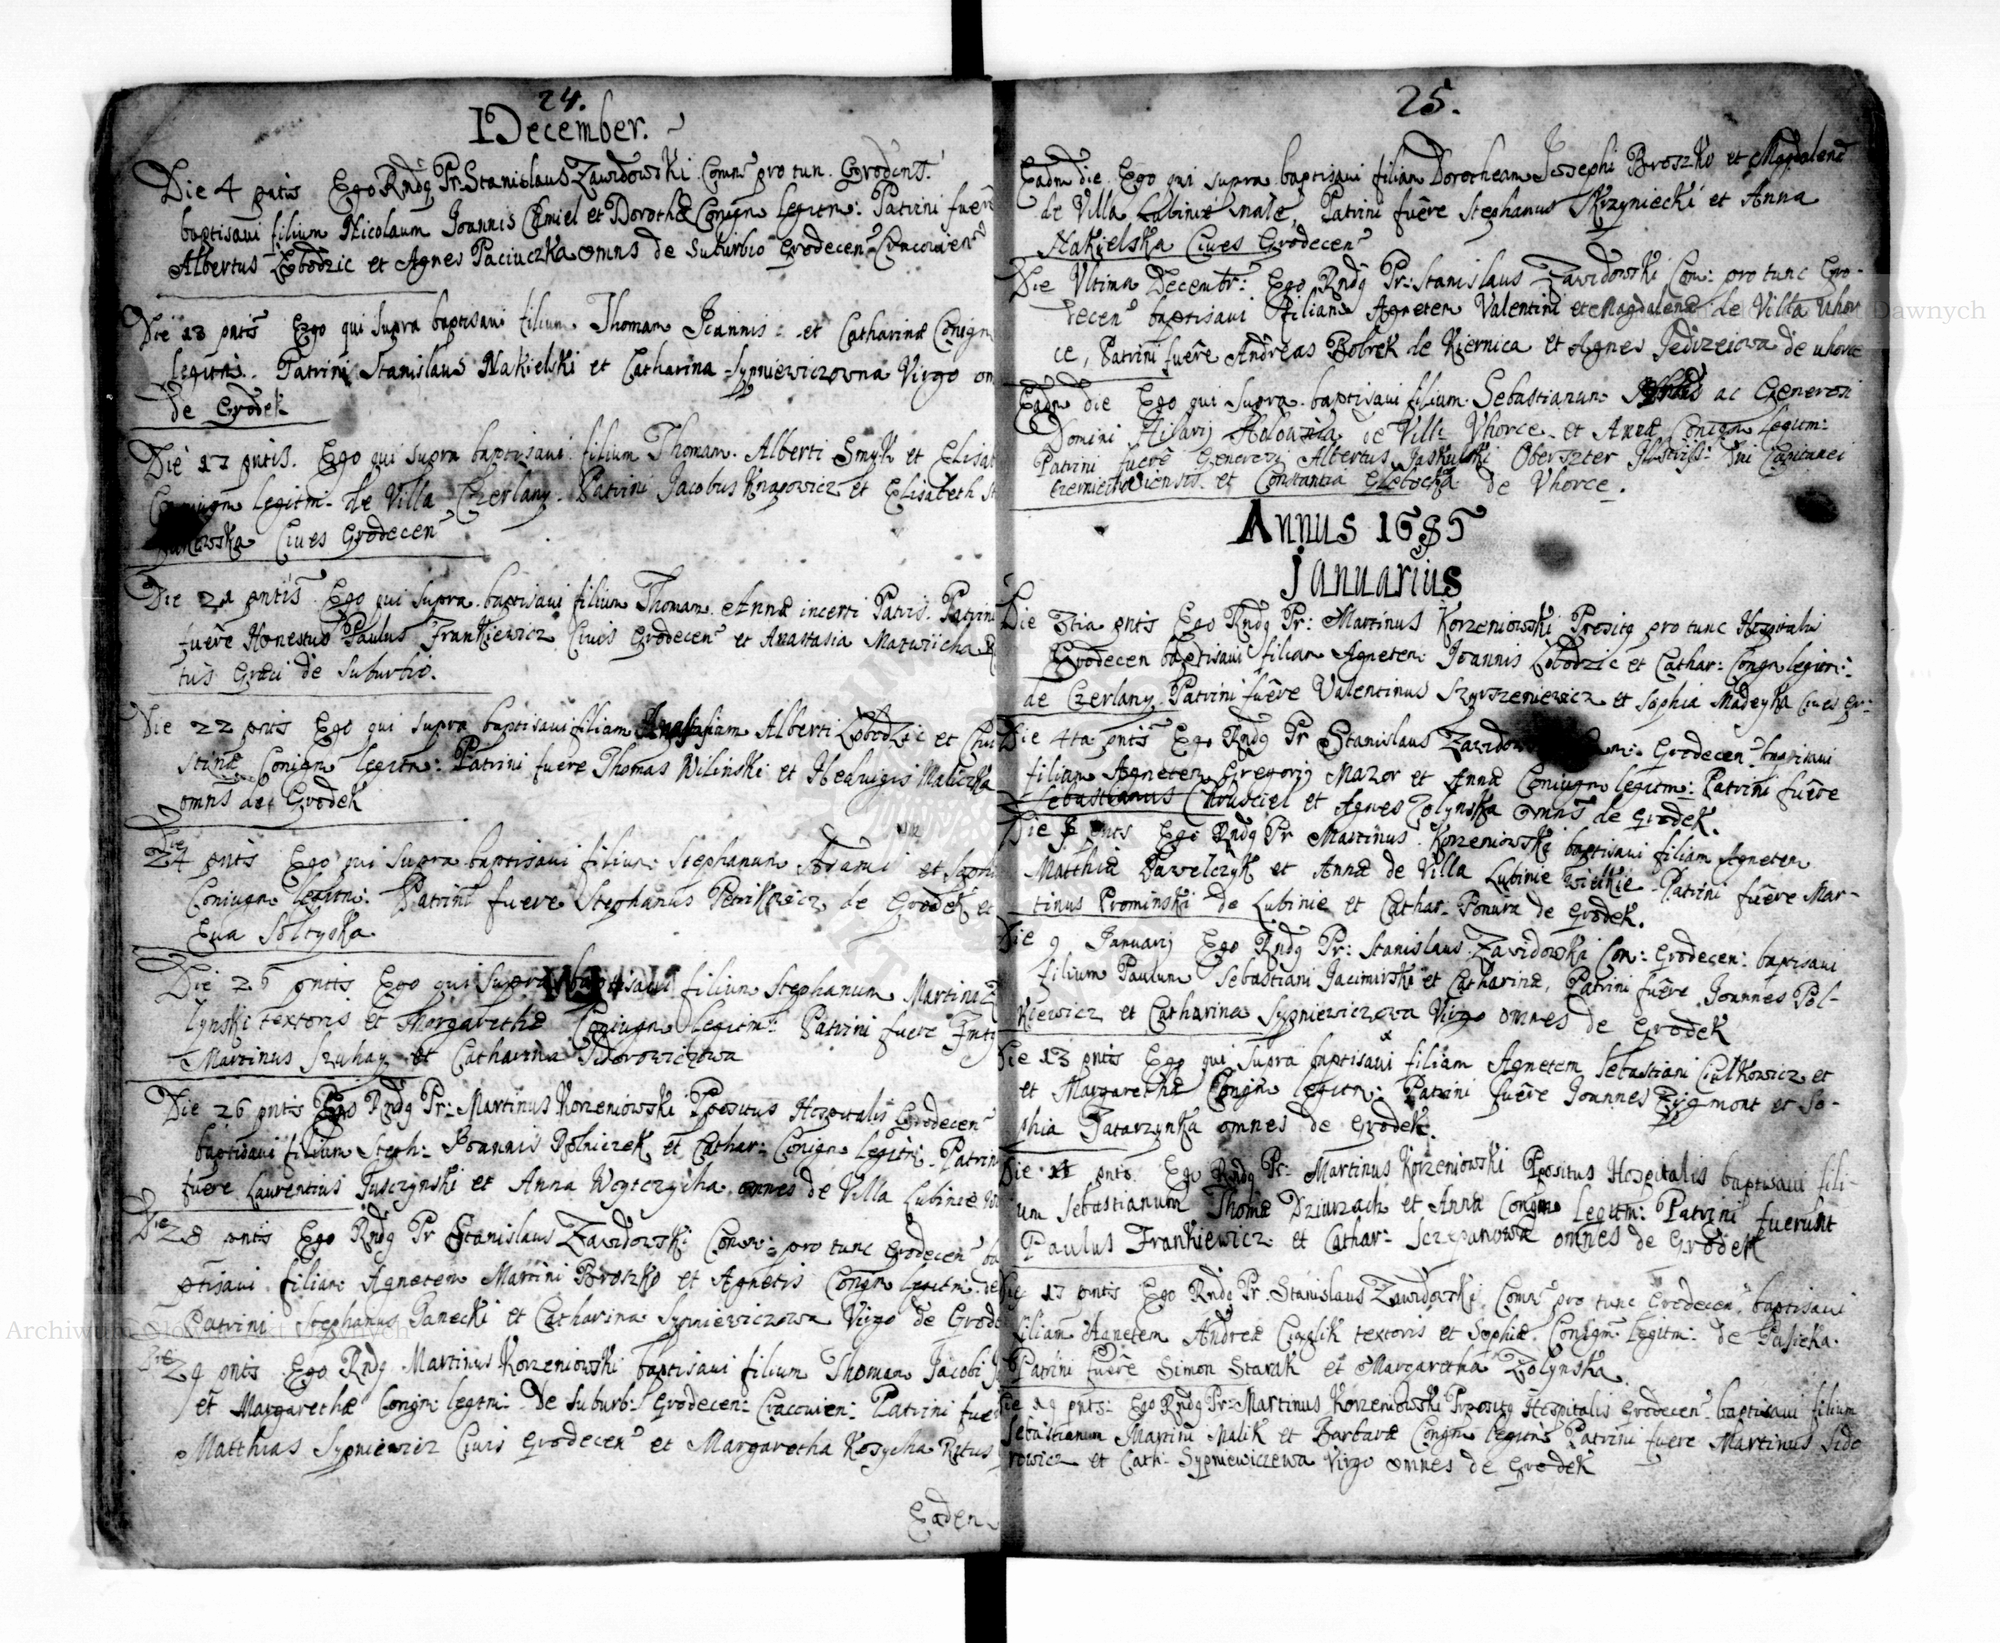 24.
December.
Die 4 pntis Ego Rndq Pr Stanislaus Zawidowski Comn pro tun. Grodens.
baptisavi filium Nicolaum Joannis Chmiel et Dorothæ Conign legitm: Patrini fuere
Albertus Lobodzic et Agnes Paciuczka omns de Suburbio Grodecen Cracovien
Die 13 pntis Ego qui supra baptisavi filium Thomam Joannis et Catharinæ Conign
legitm: Patrini Stanislaus Nakielski et Catharina Sypniewiczowna Virgo om
de Grodek
Die 17 pntis. Ego qui supra baptisavi filium Thomam Alberti Smyk et Elisab
Coniugn legitm de Villa Czerlany. Patrini Jacobus Knapowicz et Elisabeth
Cives Grodecen
Die 21 pntis Ego qui supra baptisavi filium Thomam Annæ incerti Patris. Patrini
fuere Honestus Paulus Frankiewicz Civis Grodecen et Anastasia Matwiicha R
tus Græci de Suburbio.
Die 22 pntis Ego qui supra baptisavi filiam Anastasiam Alberti Lobodzic et Chri
stinæ Conign legitm: Patrini fuere Thomas Wilinski et Hedvigis Maliczka
omns de Grodek
Die
24 pntis Ego qui supra baptisavi filium Stephanum et Soph
Coniugn legitm: Patrini fuere Stephanus Petrikowicz de Grodek et
Eva Soltyska
Die 26 pntis Ego qui supra baptisavi filium Stephanum Martini Z
lynski textoris et Margarethæ Coniugn legitm: Patrini fuere
Martinus Szuhay et Catharina Sidorowiczowa
Die 26 pntis Ego Rndq Pr: Martinus Korzeniowski Ppositus Hospitalis Grodecen
baptisavi filium Steph: Joannis Rolniczek et Cathar: Conign legitm. Patrini
fuere Laurentius Tusczynski et Anna Woytczycha omnes de Villa Lubinie
Die
28 pntis Ego Rndq Pr Stanislaus Zawidowski Comn: pro tunc Grodecen ba
ptisavi filiam Agnetem Martini Broszko et Agnetis Conign legitm: de
Patrini Stephanus Janecki et Catharina Sypniewiczowna Virgo de Grode
Die
29 pnts Ego Rndq Martinus Korzeniowski baptisavi filium Thomam Jacobi
et Margarethæ Conign legitm De Suburb: Grodecen: Cracovien: Patrini fuere
Matthias Sypniewicz Civis Grodecen et Margaretha Kosycha Ritus
Eadem
25.
Eadm die Ego qui supra baptisavi filiam Dorotheam Josephi Broszko et Magdalenæ
de Villa Lubinie male, Patrini fuere Stephanus Krzyniecki et Anna
Nakielska Cives Grodecen
Die Vltima Decembr: Ego Rndq Pr: Stanislaus Zawidowski Com: pro tunc Gro-
decen baptisavi filiam Agnetem Valentini et Magdalenæ de Villa Vhor
ce, Patrini fuere Andreas Bobrek de Kiernica et Agnes Jedrzeiowa de Vhorce
Eadm die Ego qui supra baptisavi filium Sebastianum ac Generosi
Domini Hilarij de Villa Vhorce et Annæ Conign legitm:
Patrini fuere Generosi Albertus Jaskulski Oberszter Illustriss: Dni Capitanei
et Constantia Glebocka de Vhorce.
Annus 1685
Januarius
Die 3tia pntis Ego Rndq Pr: Martinus Korzeniowski Ppositq pro tunc Hospitalis
Grodecen baptisavi filiam Agnetem Joannis Lobodzic et Cathar: Conign legitm:
de Czerlany Patrini fuere Valentinus Szyrszeniewicz et Sophia Madeyka Cives Gr:
Die 4ta pntis Ego Rndq Pr Stanislaus Grodecen baptisavi
filiam Agnetem Gregorij Mazor et Annæ Coniugn legitm: Patrini fuere
Sebastianus Chrusciel et Agnes Zolynska omns de Grodek.
Die pnts Ego Rndq Pr Martinus Korzeniowski baptisavi filiam Agnetem
Matthiæ Pawelczyk et Annæ de Villa Lubinie Wielkie. Patrini fuere Mar-
tinus Prominski de Lubinie et Cathar. Ponura de Grodek.
Die 9 Januarij Ego Rndq Pr: Stanislaus Zawidowski Com: Grodecen: baptisavi
filium Paulum Sebastiani Jacimirski et Catharinæ, Patrini fuere Joannes Pol-
kiewicz et Catharina Sypniewiczowa Virgo omnes de Grodek
Die 13 pntis Ego qui supra baptisavi filiam Agnetem Sebastiani Cialkowicz et
et Margarethæ Conign legitm: Patrini fuere Joannes Zygmont et So-
phia Tatarzynka omnes de Grodek.
Die 11 pnts Ego Rndq Pr: Martinus Korzeniowski Ppositus Hospitalis baptisavi fili-
um Sebastianum Thomæ Dziurzach et Annæ Conign legitm: Patrini fuerunt
Paulus Frankiewicz et Cathar: Sczepanowa omnes de Grodek
Die 17 pntis Ego Rndq Pr. Stanislaus Zawidowski Comn pro tunc Grodecen baptisavi
filiam Agnetem Andreæ Czaglik textoris et Sophiæ Conign legitm: de Pasieka.
Patrini fuere Simon Starak et Margaretha Zolynska.
Die 19 pnts: Ego Rndq Pr: Martinus Korzeniowski Ppositq Hospitalis Grodecen baptisavi filium
Sebastianum Martini Malik et Barbaræ Conign legitm Patrini fuere Martinus Sido
rowicz et Cath: Sypniewiczewa Virgo omnes de Grodek